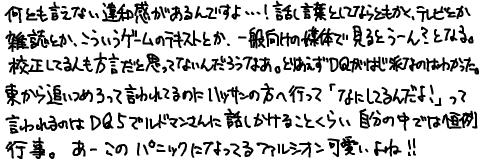 何とも言えない違和感があるんですよ…！話し言葉としてならともかく、テレビとか
雑誌とか、こういうゲームのテキストとか、一般向けの媒体で見るとうーん？となる。
校正してる人も方言だと思ってないんだろうなあ。とりあえずDQがはじ系なのはわかった。
東から追いつめろって言われてるのにハッサンの方へ行って「なにしてるんだよ！」って
言われるのはDQ5でルドマンさんに話しかけることくらい自分の中では恒例
行事。あーこのパニックになってるファルシオン可愛いよね！！